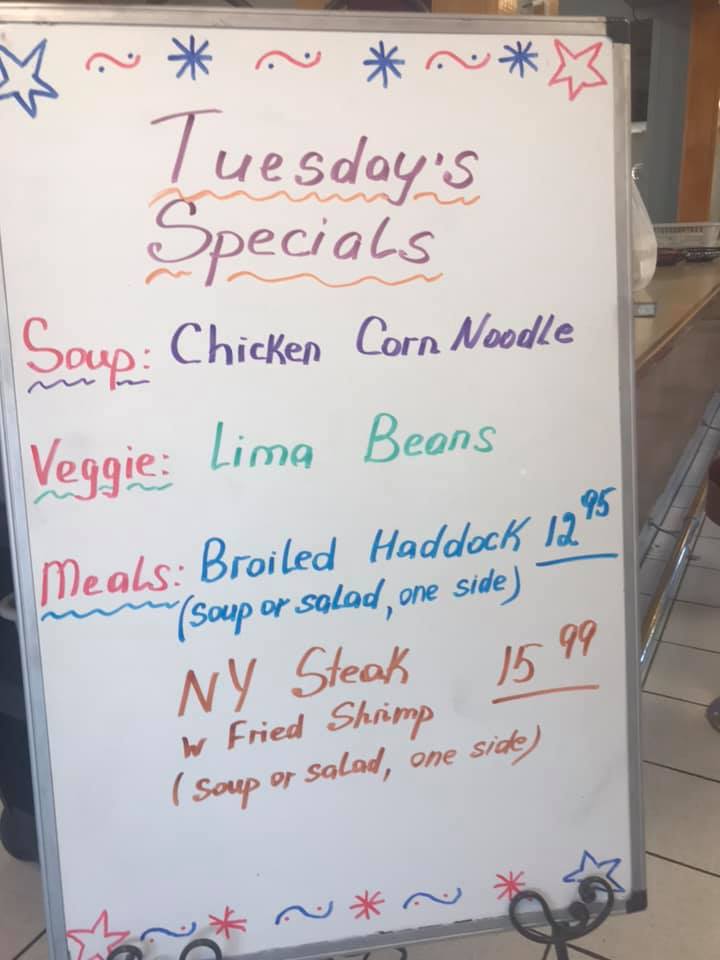 Tuesday's
Specials
Soup: Chicken Corn Noodle
Veggie: Lima Beans
Meals: Broiled Haddock 12 95
(soup or salad, one side)
NY Steak 15 99
w Fried Shrimp
(soup or salad, one side)